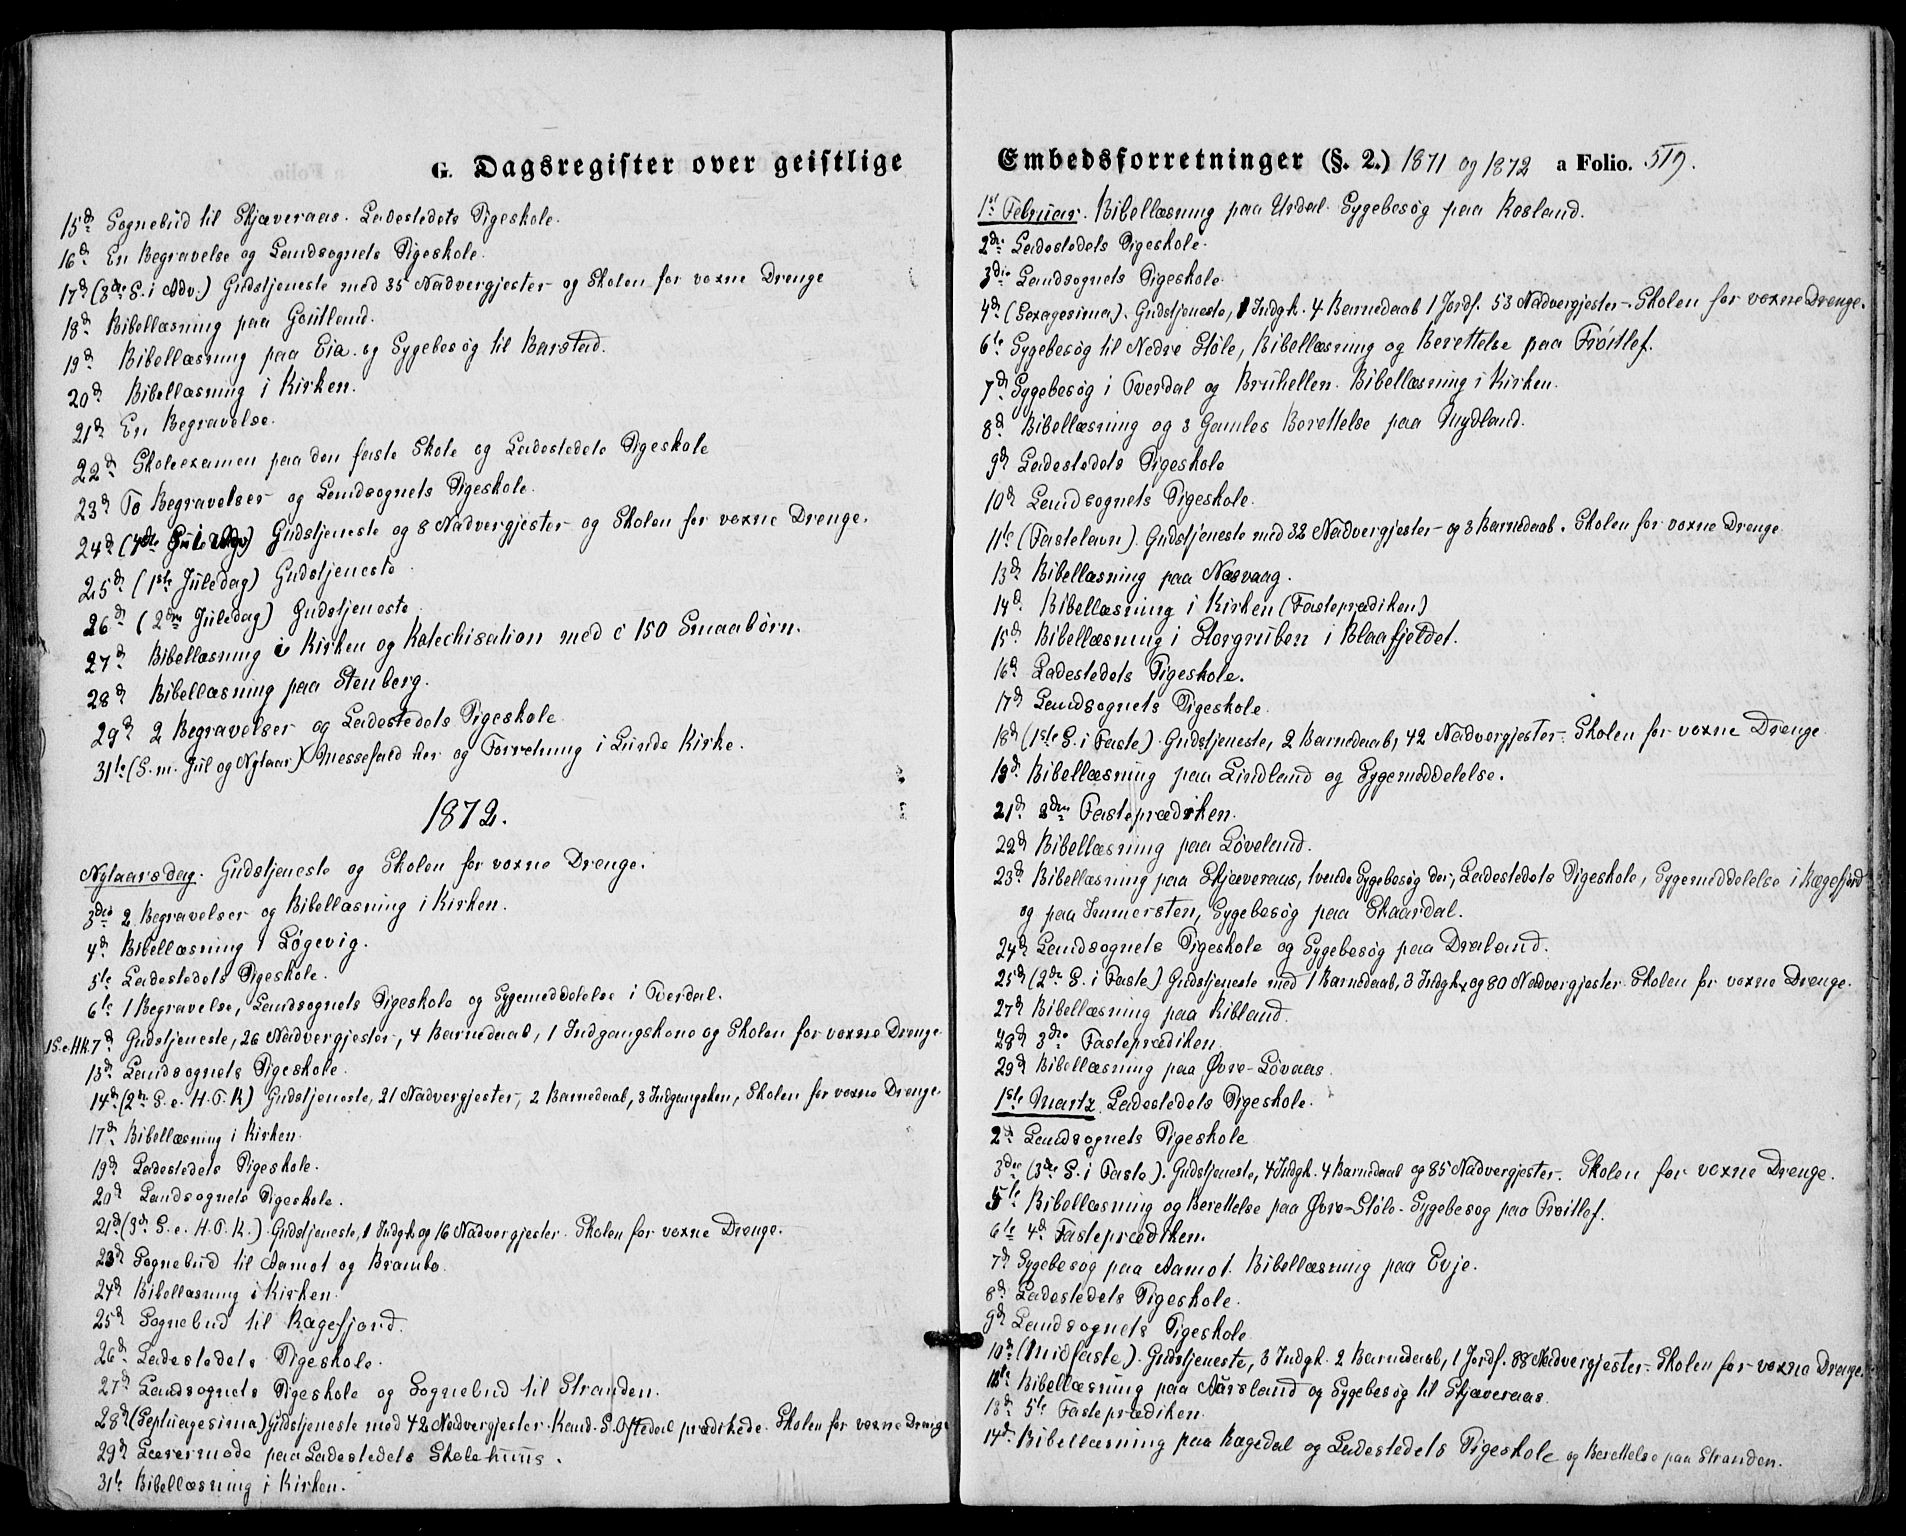 G. Dagsregister over geistlige
15d Sognebud til Skjæveraas. Ladestedets Pigeskole.
16d En Begravelse og Landsognets Pigeskole.
17d (3die S. i Adv.) Gudstjeneste med 35 Nadvergjester og Skolen for voxne Drenge
18d Bibellæsning paa Goutland.
19d Bibellæsning paa Eia og Sygebesøg til Barstad.
20d Bibellæsning i Kirken.
21d En Begravelse.
22d Skoleexamen paa den faste Skole og Ladestedets Pigeskole
23d To Begravelser og Landsognets Pigeskole.
24d (4de S. i Adv) Gudstjeneste og 8 Nadvergjester og Skolen for voxne Drenge.
25d (1ste Juledag) Gudstjeneste.
26d (2den Juledag) Gudstjeneste.
27d Bibellæsning i Kirken og Katechisation med c 150 Smaabørn.
28d Bibellæsning paa Stenberg.
29d 2 Begravelser og Ladestedets Pigeskole
31te (S. m. Jul og Nytaar) Messefald her og Forretning i Lunde Kirke.
1872.
Nytaarsdag. Gudstjeneste og Skolen for voxne Drenge.
3die 2 Begravelser og Bibellæsning i Kirken.
4d Bibellæsning i Løgevig.
5te Ladestedets Pigeskole.
6te 1 Begravelse, Landsognets Pigeskole og Sygemeddelelse i Tverdal.
1S.e.Hk. 7d Gudstjeneste, 26 Nadvergjester, 4 Barnedaab, 1 Indgangskone og Skolen for voxne Drenge
13d Landsognets Pigeskole.
14d (2n S. e. H.3.K) Gudstjeneste, 21 Nadvergjester, 2 Barnedaab, 3 Indgangskon, Skolen for voxne Drenge.
17d Bibellæsning i Kirken.
19d Ladestedets Pigeskole.
20d Landsognets Pigeskole.
21d (3d S. e. H.3.K.) Gudstjeneste, 1 Indgk og 16 Nadvergjester. Skolen for voxne Drenge.
23d Sognebud til Aamot og Brambo.
24d Bibellæsning i Kirken.
25d Sognebud til Rægefjord.
26d Ladestedets Pigeskole.
27d Landsognets Pigeskole og Sognebud til Stranden.
28d (Septuagesima) Gudstjeneste med 42 Nadvergjester. Kand. S. Oftedal prædikede. Skolen for voxne Drenge
29d Lærermøde paa Ladestedets Skolehuus.
31te Bibellæsning i Kirken.
Embedsforretninger (§. 2.) 1871 og 1872 a Folio. 519.
1ste Februar. Bibellæsning paa Urdal. Sygebesøg paa Rosland.
2den Ladestedets Pigeskole.
3die Landsognets Pigeskole.
4d (Sexagesima). Gudstjeneste, 1 Indgk. 4 Barnedaab 1 Jordf. 53 Nadvergjester. Skolen for voxne Drenge.
6te Sygebesøg til Nedre Støle, Bibellæsning og Berettelse paa Frøitlef.
7d Sygebesøg i Tverdal og Bruhellen. Bibellæsning i Kirken.
8d Bibellæsning og 3 Gamles Berettelse paa Mydland.
9d Ladestedets Pigeskole
10d Landsognets Pigeskole.
11te (Fastelavn). Gudstjeneste med 32 Nadvergjester og 3 Barnedaab. Skolen for voxne Drenge
13d Bibellæsning paa Nesvaag.
14d Bibellæsning i Kirken (Fasteprædiken)
15d Bibellæsning i Storgruben i Blaafjeldet.
16d Ladestedets Pigeskole.
17d Landsognets Pigeskole.
18d (1ste S. i Faste). Gudstjeneste, 2 Barnedaab, 42 Nadvergjester. Skolen for voxne Drenge
19d Bibellæsning paa Lindland og Sygemeddelelse.
21d 2den Fasteprædiken.
22d Bibellæsning paa Løveland.
23d Bibellæsning paa Skjæveraas, tvende Sygebesøg der, Ladestedets Pigeskole, Sygemeddelelse i Rægefjord
og paa Immersten, Sygebesøg paa Skaardal.
24d Landsognets Pigeskole og Sygebesøg paa Draland.
25d (2de S. i Faste) Gudstjeneste med 1 Barnedaab, 3 Indgk. og 80 Nadvergjester. Skolen for voxne Drenge.
27d Bibellæsning paa Kibland.
28d 3die Fasteprædiken.
29d Bibellæsning paa Øvre-Løvaas.
1ste Martz. Ladestedets Pigeskole.
2d Landsognets Pigeskole
3die (3die S. i Faste). Gudstjeneste, 4 Indgk. 4 Barnedaab og 85 Nadvergjester. Skolen for voxne Drenge.
5te Bibellæsning og Berettelse paa Øvre-Støle. Sygebesøg paa Frøitlef.
6te 4d Fasteprædiken.
7d Sygebesøg paa Aamot. Bibellæsning paa Evje.
8d Ladestedets Pigeskole.
9d Landsognets Pigeskole
10d (Midfaste). Gudstjeneste, 3 Indgk. 2 Barnedaab, 1 Jordf. 88 Nadvergjester. Skolen for voxne Drenge.
12te Bibellæsning paa Aarsland og Sygebesøg til Skjæveraas.
13d 5te Fasteprædiken.
14d Bibellæsning paa Rægedal og Ladestedets Pigeskole og Berettelse paa Stranden.